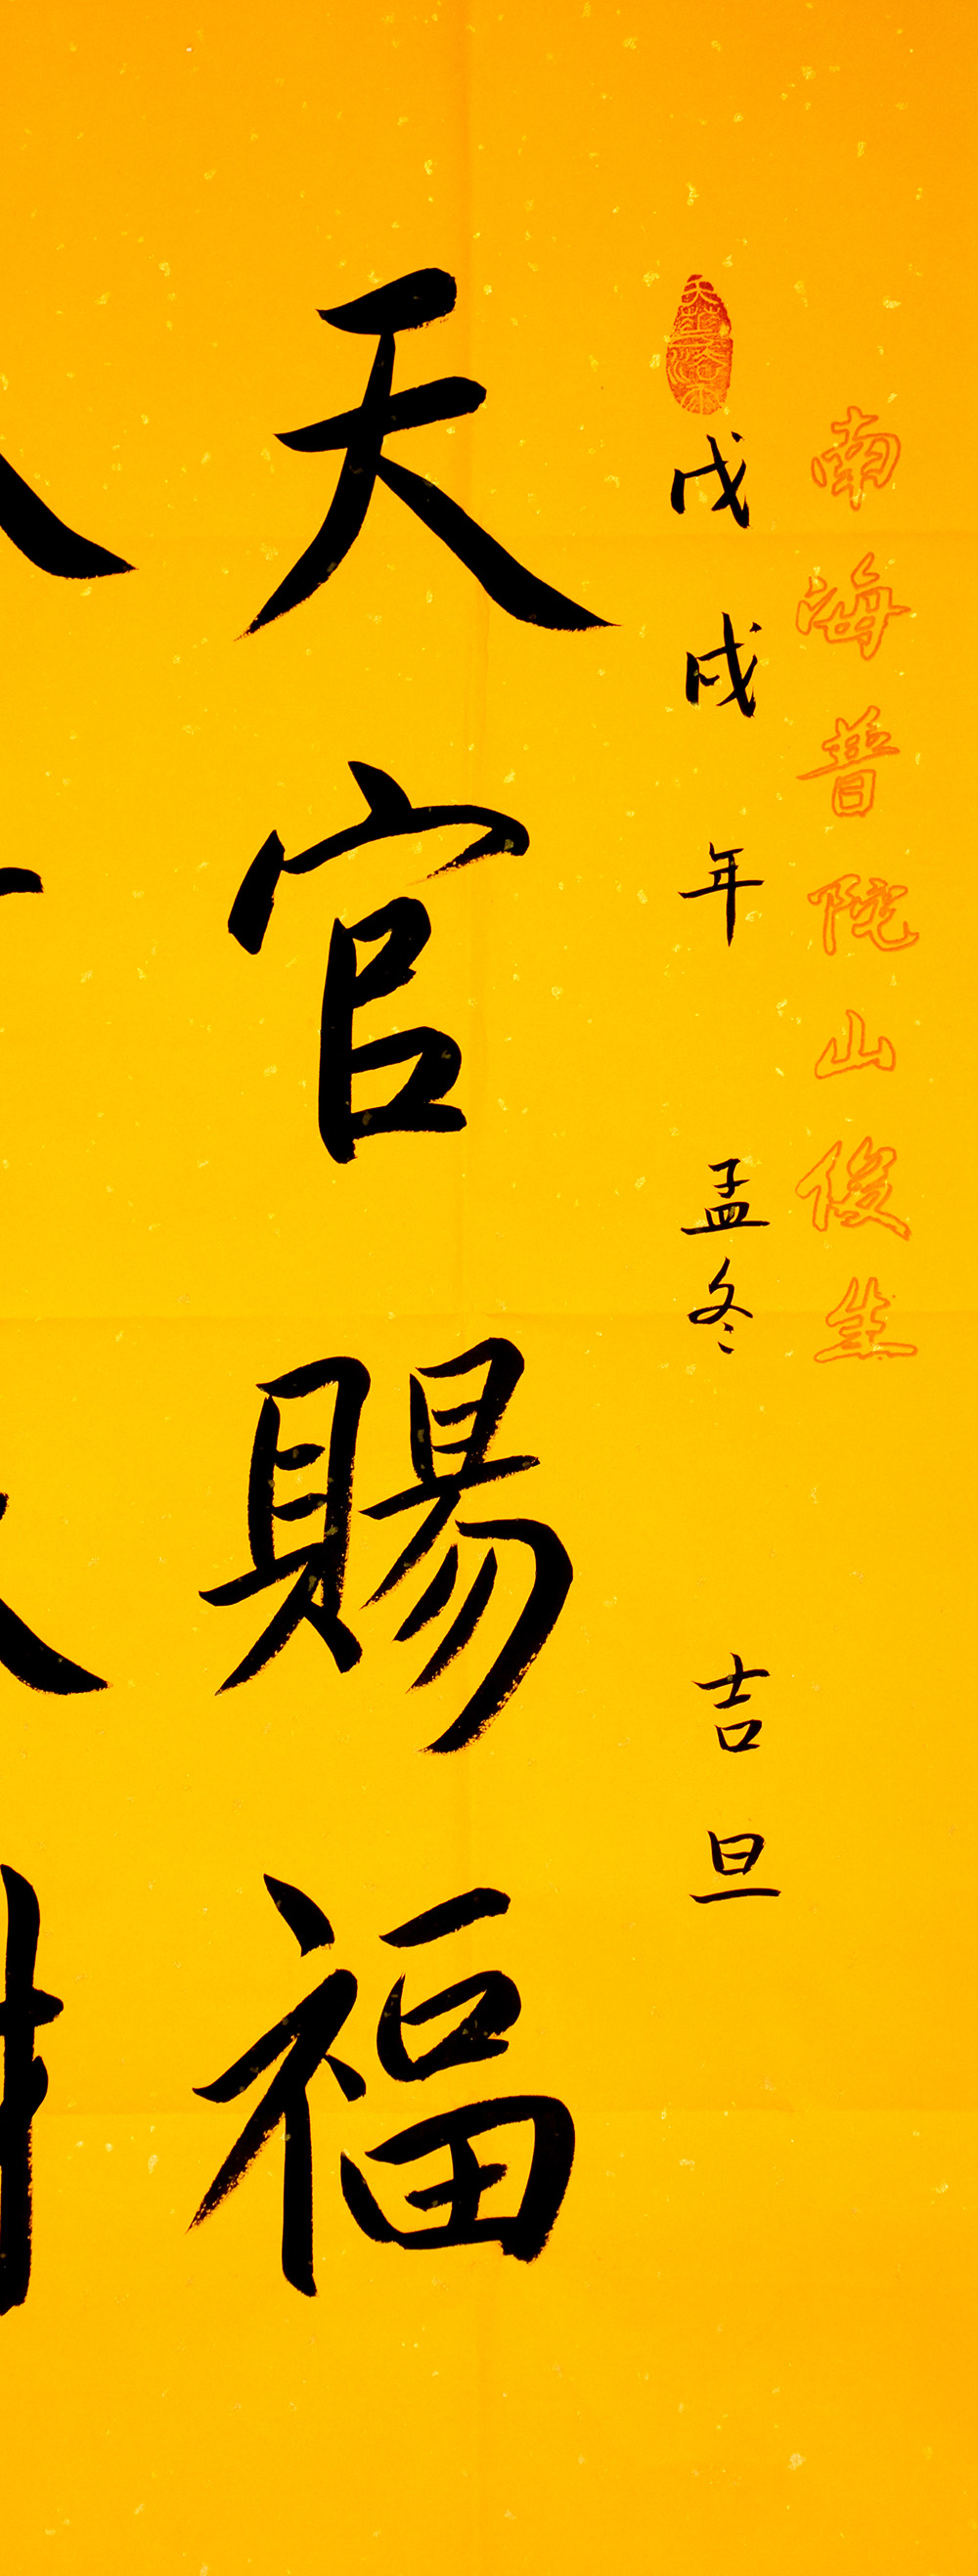 南海普陀山俊生
戊戌年 孟冬 吉旦
天官賜福